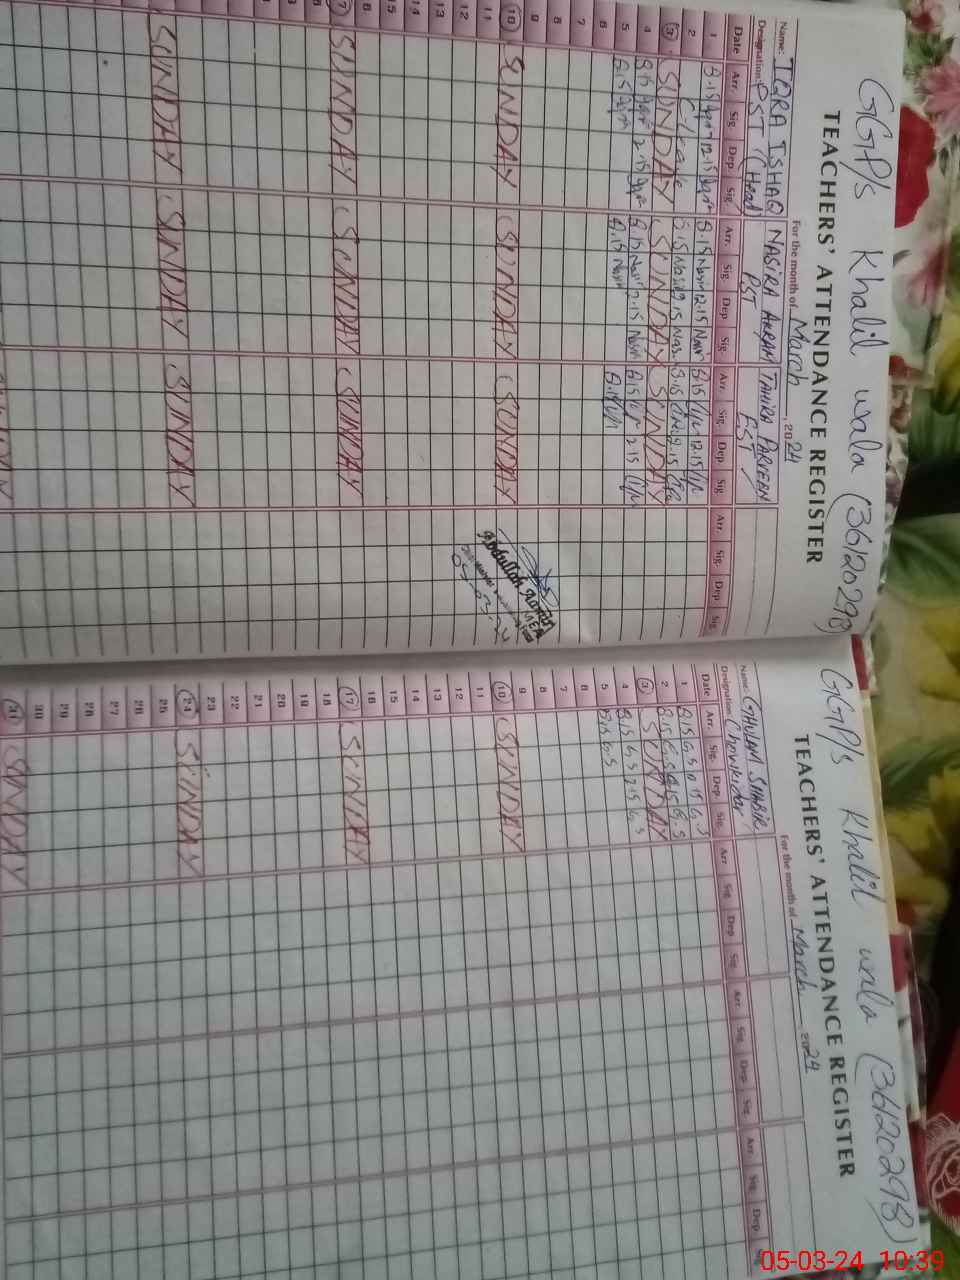 GGP/s Khalil wala (36120298)
TEACHERS' ATTENDANCE REGISTER
For the month of March, 2024
Name: IQRA ISHAQ NASIRA AKRAM TAHIRA PARVEEN
Designation: PST (Head) PST EST
Date Arr. Sig. Dep. Sig. Arr. Sig. Dep Sig. Arr. Sig. Dep Sig Arr. Sig. Dep Sig.
1 8.15 12.15 8.15 12.15 8.15 12.15
2 C-Leave 8.15 8.15
3 SUNDAY SUNDAY SUNDAY
4 8.15 2.15 8.15 2.15 8.15 2.15
5 8.15 8.15 8.15
6
7
8
9
10 SUNDAY SUNDAY SUNDAY
11
12
13
14
15
16
17 SUNDAY SUNDAY SUNDAY
SUNDAY SUNDAY SUNDAY
Abdullah
MEA
05-03-24
GGP/s Khalil wala (36120298)
TEACHERS' ATTENDANCE REGISTER
For the month of March 2024
Name: GHULAM SHABIR
Designation: Chowkidar
Date Arr. Sig. Dep. Sig. Arr Sig. Dep Sig. Arr. Sig. Dep. Sig. Arr. Sig. Dep
1 8.15 G.S 12.15 G.S
2 8.15 G.S G.S
3 SUNDAY
4 8.15 G.S 2.15 G.S
5 8.15 G.S
6
7
8
9
10 SUNDAY
11
12
13
14
15
16
17 SUNDAY
18
19
20
21
22
23
24 SUNDAY
25
26
27
28
29
30
31 SUNDAY
05-03-24 10:39